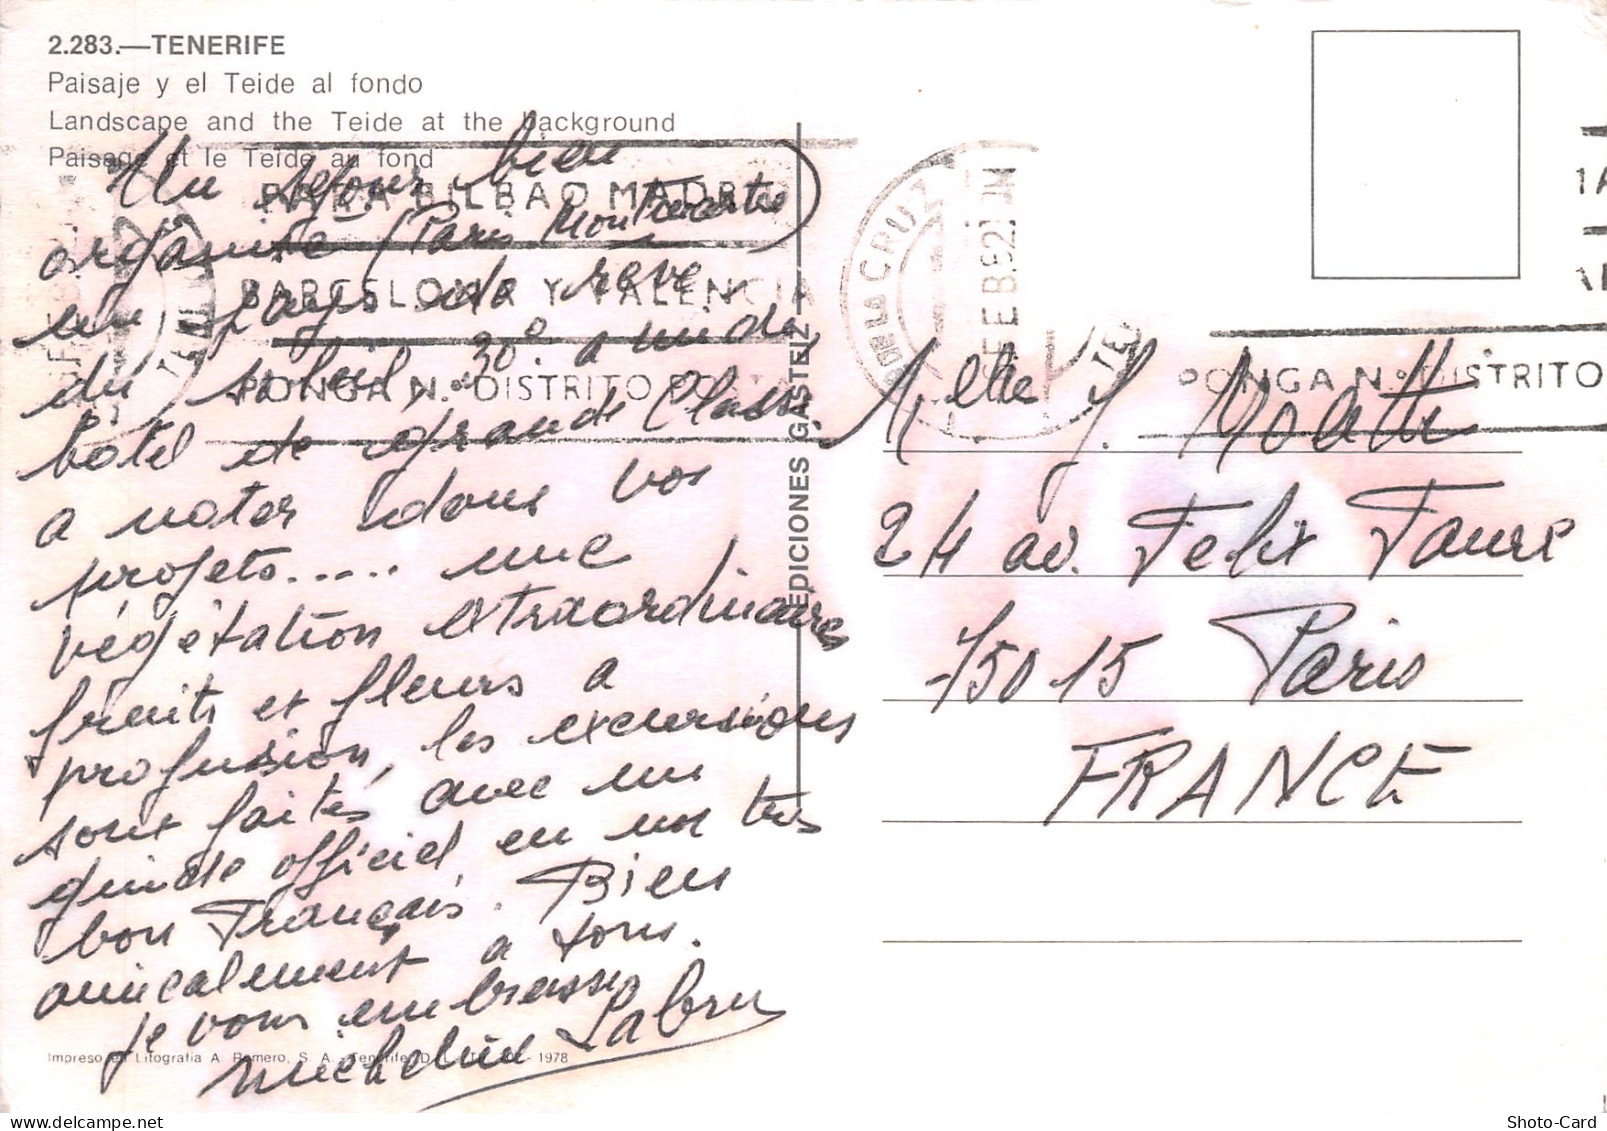 2.283.—TENERIFE
Paisaje y el Teide al fondo
Landscape and the Teide at the background
Paisage et le Teide au fond
PARA BILBAO MADRID
BARCELONA Y VALENCIA
PONGA N.º DISTRITO POSTAL
DE LA CRUZ
FEB.82
PONGA N.º DISTRITO
Un séjour bien
organisé (Paris Montmartre)
un pays de reve
du soleil, 30° a midi
hotel de grande Classe
a noter dans vos
projets..... une
végétation extraordinaires
fruits et fleurs a
profusion, les excursions
sont faites avec un
guide officiel en
bon Français. Bien
amicalement a tous.
je vous embrasse
Micheline
EDICIONES GASTEIZ
Melle J.
24 av. Felix Faure
75015 Paris
FRANCE
Impreso en Litografia A. Romero, S. A. - Tenerife. D. L. - 1978
Shoto-Card